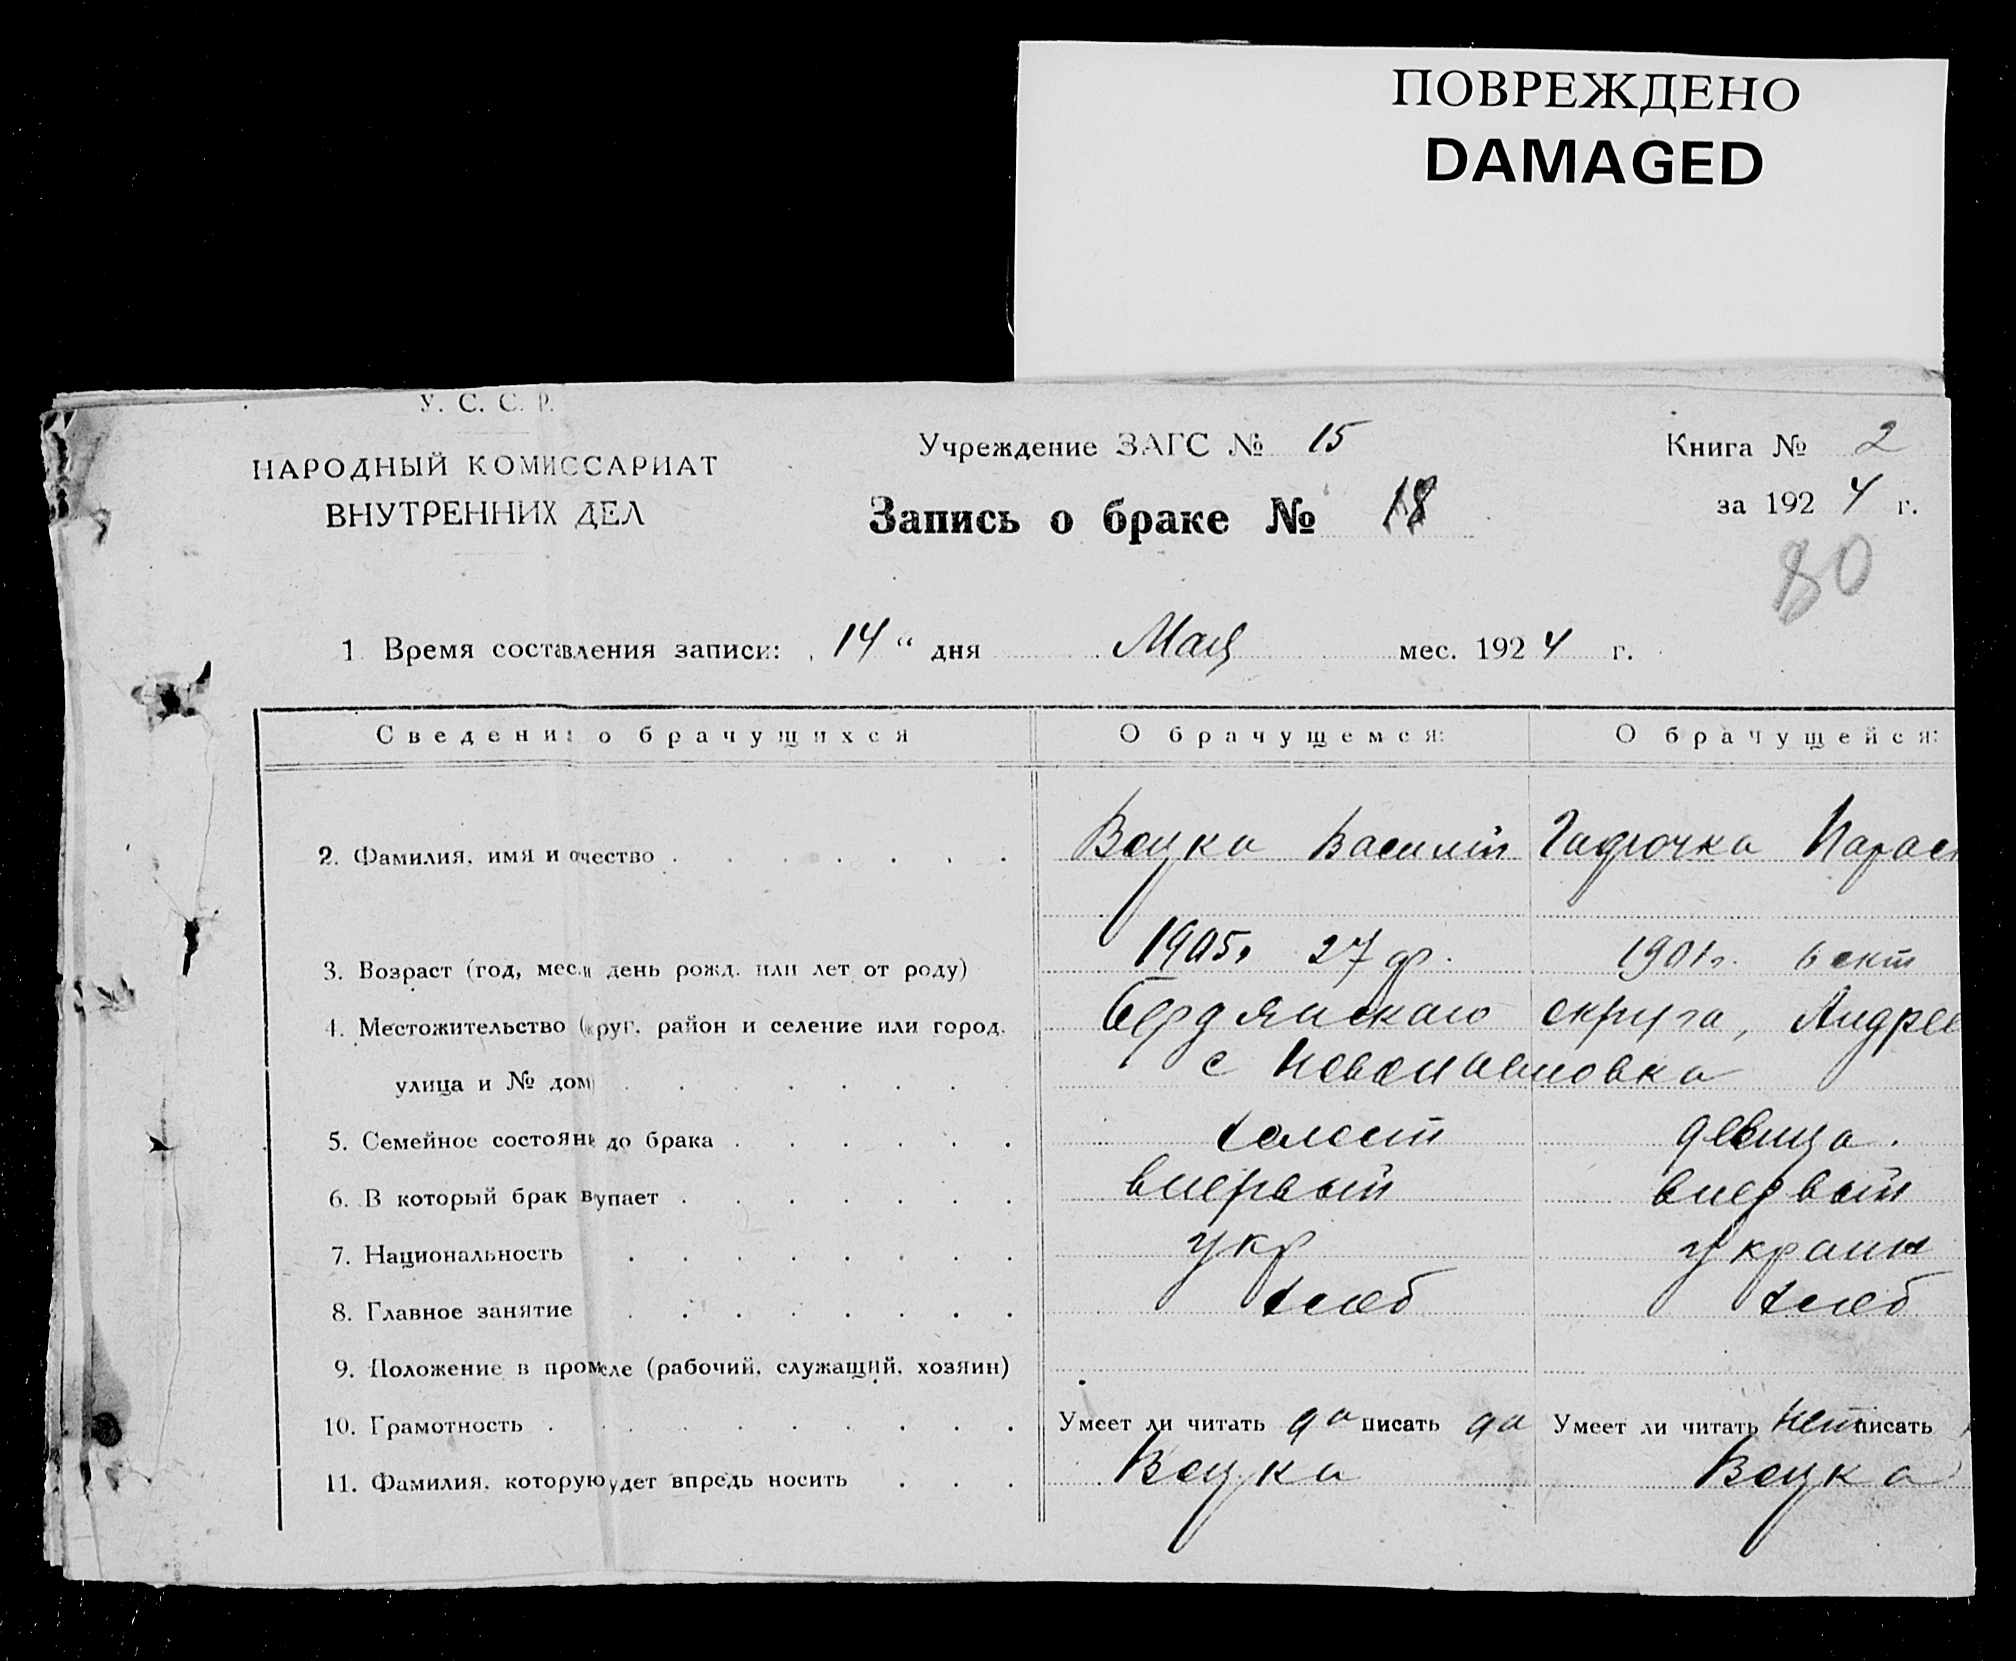 ПОВРЕЖДЕНО
DAMAGED
У. С. С. Р.
НАРОДНЫЙ КОМИССАРИАТ
ВНУТРЕННИХ ДЕЛ
Учреждение ЗАГС № 15
Книга № 2
Запись о браке № 18
за 1924 г.
80
1 Время составления записи: 14 " дня Мая мес. 1924 г.
Сведени о брачущихся О брачущемся: О брачущейся:
2. Фамилия, имя и очество Воука Василий Гадючка Парас
3. Возраст (год, мес. и день рожд. или лет от роду) 1905г 27 ф. 1901г. 6 окт
4. Местожительство (круг. район и селение или город. Бердянского округа, Андрее
улица и № дом с Новопавловка
5. Семейное состояни до брака холост девица.
6. В который брак вупает впервый впервый
7. Национальность укр украин
8. Главное занятие хлеб хлеб
9. Положение в промсле (рабочий, служащий, хозяин)
10. Грамотность Умеет ли читать да писать да Умеет ли читать нет писать
11. Фамилия, которую удет впредь носить Воука Воука